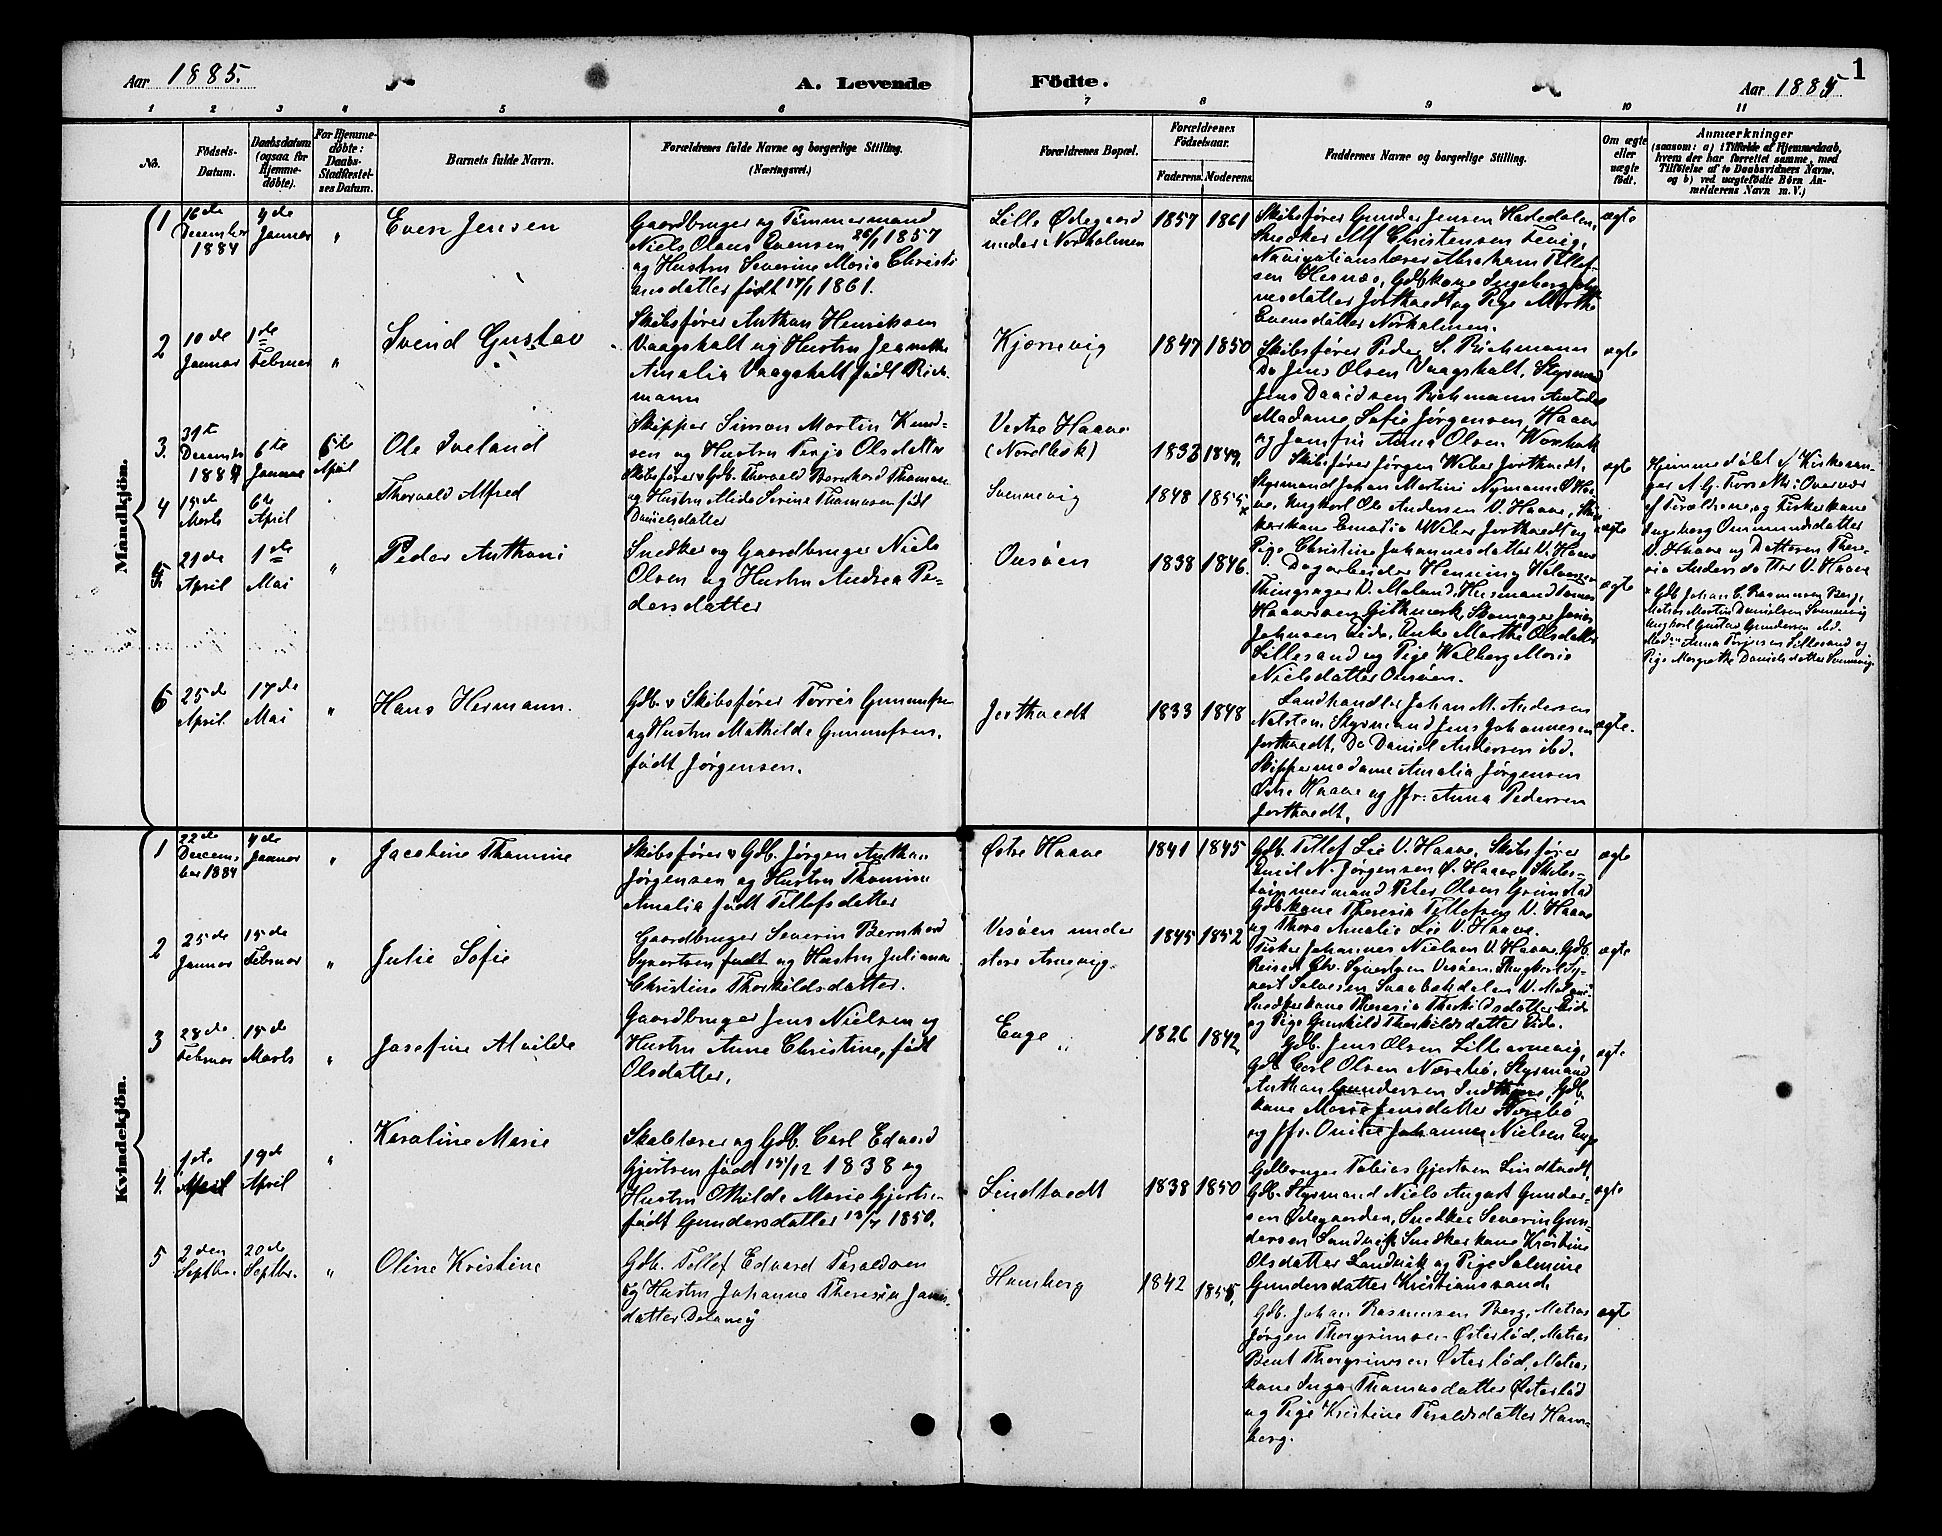 Aar 1885.
A. Levende Födte.
Aar 1885
1
1 2 3 4 5 6 7 8 9 10 11
No.
Födsels-Datum.
Daabsdatum (ogsaa for Hjemmedöbte).
For Hjemmedöbte: Daabs-Stadfæstelses Datum.
Barnets fulde Navn.
Forældrenes fulde Navne og borgerlige Stilling. (Næringsvei.)
Forældrenes Bopæl.
Forældrenes Födselsaar.
Faderens. Moderens.
Faddernes Navne og borgerlige Stilling.
Om ægte eller uægte födt.
Anmærkninger
(saasom: a) i Tilfælde af Hjemmedaab, hvem der har forrettet samme, med Tilföielse af to Daabsvidners Navne, og b) ved uægtefödte Börn Anmelderens Navn m. V.)
Mandkjön.
1
16de December 1884
4de Januar
"
Even Jensen
Gaardbruger og Tømmermand
Niels Olaus Evensen 26/1 1857
og Hustru Severine Marie Christi
ansdatter født 14/1 1861.
Lille Ødegaard
under Norholmen
1857 1861
Skibsfører Gunder Jensen Hasledalen,
Snedker Alf Christensen Fevig,
Navigationslærer Abraham Tellef
sen Hesnæs, Gdbkone Ingeborg
nesdatter Jortveidt og Pige Marthe
Evensdatter Norholmen.
ægte
2
10de Januar
1ste Februar
"
Svend Gustav
Skibsfører Anthon Henriksen
Vaagsholt og Hustru Jeanette
Amalia Vaagsholt født Rich
mann
Kjørrevig
1847 1850
Skibsfører Peder S. Richmann
Do Jens Olsen Vaagsholt, Styrmand
Jens Davidsen Richmann
Madame Sofie Jørgensen, Haave
og Jomfru Anna Olsen
ægte
3.
31te December 1884
6te Januar
6te April
Ole Iveland
Skipper Simon Martin Knud-
sen og Hustru Terje Olsdatter
Vestre Haave
(Nordbøk)
1832 1849.
Skibsfører Jørgen Weber Jortveidt,
Styrmand Johan Martin Nymann Ø Haa
ve, Ungkarl Ole Andersen V. Haave,
Emalia Weber Jortveidt og
Pige Christine Johannesdatter V. Haave
ægte
Hjemmedøbt af Kirkesan-
ger A. G. Foss
af Forældrene, og Fiskerkone
Ingeborg Ommundsdatter
V. Haave og Datteren There-
sia Andersdatter V. Haave
4
15de Marts
6te April
Thorvald Alfred
Skibsfører & Gdb. Thorvald Bernhard Thomassen
og Hustru Alida Serine Thomassen født
Danielsdatter
Svennevig
1848 1855
ægte
* Gdb. Johan C. Rasmussen Berg,
Matros Martin Danielsen Svennevig
Ungkarl Gustav Gundersen ibd.
Mad. Anna Terjesen Lillesand og
Pige Margrethe Danielsdatter Svennevig
5
21de April
1ste Mai
"
Peder Anthoni
Snedker og Gaardbruger Niels
Olsen og Hustru Andrea Pe-
dersdatter
Ousøen
1838 1846.
Dagarbeider Henning Halvorsen
Thingsager V. Moland, Husmand
Githmark, Skomager Jens
Johnsen Eide, Enke Marthe Olsdatter
Lillesand og Pige Walborg Marie
Nielsdatter Ousøen.
ægte
6
25de April.
17de Mai
"
Hans Hermann.
Gdb. & Skibsfører Torres Gunnufsen
og Hustru Mathilde Gunnufsen,
født Jørgensen.
Jortveidt
1833 1848
Landhandler Johan M. Andersen
Nalsten, Styrmand Jens Johannesen
Jortveidt, Do Daniel Andersen ibd.
Skippermadame Amalia Jørgensen
Østre Haave og Jfr: Anna Pedersen
Jortveidt.
ægte.
Kvindekjön.
1
22de December 1884
4de Januar
"
Jacobine Thomine
Skibsfører & Gdb. Jørgen Anthon
Jørgensen og Hustru Thomine
Amalia født Tellefsdatter
Østre Haave
1841 1845
Gdb. Tellef Lie V. Haave, Skibsfører
Emil N. Jørgensen Ø. Haave, Skibs-
tømmermand Peter Olsen Grimstad
Gdbkone Theresia Tellefsen V. Haave
og Thora Amalie Lie V. Haave.
ægte
2
25de Januar
15de Februar
"
Julie Sofie
Gaardbruger Severin Bernhard
Syvertsen født og Hustru Juliane
Christine Thorkildsdatter.
Vesøen under
store Arnevig.
1845 1852
Fisker Johannes Nielsen V. Haave, Gdb.
Reinert Chr. Syvertsen Vesøen, Ungkarl Sy-
vert Salvesen Svaabekdalen V. Moland
Snedkerkone Theresia Thorkildsdatter Eide
og Pige Gunhild Thorkildsdatter Eide.
ægte
3
28de Februar
15de Marts
"
Josefine Alvilde
Gaardbruger Jens Nielsen og
Hustru Anne Christine, født
Olsdatter.
Enge
"
1826 1842
Gdb. Jens Olsen Lillearnevig,
Gdb. Carl Olsen Nærebø, Styrmand
Anthon Gundersen, Gdb.
kone Marie Jensdatter Nærebø
og Jfr. Johanne Nielsen Enge
ægte
4.
1ste April
19de April
"
Karoline Marie
Skolelærer og Gdb. Carl Edvard
Gjertsen født 15/12 1838 og
Hustru Othilde Marie Gjertsen
født Gundersdatter 13/7 1850.
Lindtveidt
1838 1850
Gdbruger Tobias Gjertsen Lindtveidt,
Gdb. Styrmand Niels August Gunder-
sen Ødegaarden, Snedker Severin Gun
dersen Landvik Snedkerkone Kristine
Olsdatter Landvik og Pige Salmine
Gundersdatter Kristianssand.
ægte
5
2den Septbr.
20de Septbr.
"
Oline Kristine
Gdb. Tellef Edvard Taraldsen
og Hustru Johanne Theresia Jans-
datter Dalavig
Homborg
1842 1855.
Gdb. Johan Rasmussen Berg, Matros
Jørgen Thorgrimsen Østerlød, Matros
Bent Thorgrimsen Østerlød, Matros
kone Inger Thomasdatter Østerlød
og Pige Kristine Taraldsdatter Hom-
borg.
ægte